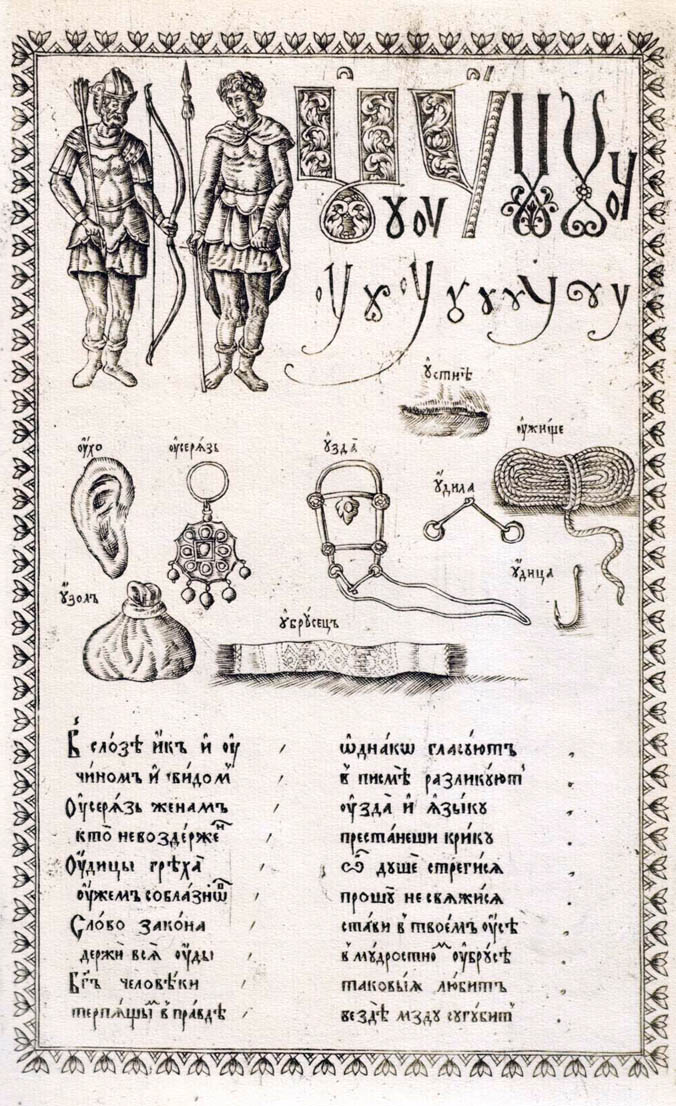 Ꙋ оу
ꙋстнѣ
оужище
оухо
оусерѧзь
ꙋзда
ꙋдила
ꙋдица
ꙋзолъ
ꙋбрꙋсецъ
В слозѣ икъ и оу ѡднакѡ гласꙋютъ
чиномъ и видомъ в писмѣ разликꙋютъ
Оусерѧзь женамъ оузда и ѧзыкꙋ
кто невоздерженъ престанеши крикꙋ
Оудицы грѣха ѿ дꙋшѣ стрегисѧ
оужемъ соблазнѡвъ прошꙋ не свѧжисѧ
Слово закона стави в твоемъ оусѣ
держи всѧ оуды в мꙋдростномъ оубрꙋсѣ
Бг҃ъ человѣки таковыѧ любитъ
терпѧщыѧ в правдѣ вездѣ мздꙋ сугꙋбитъ